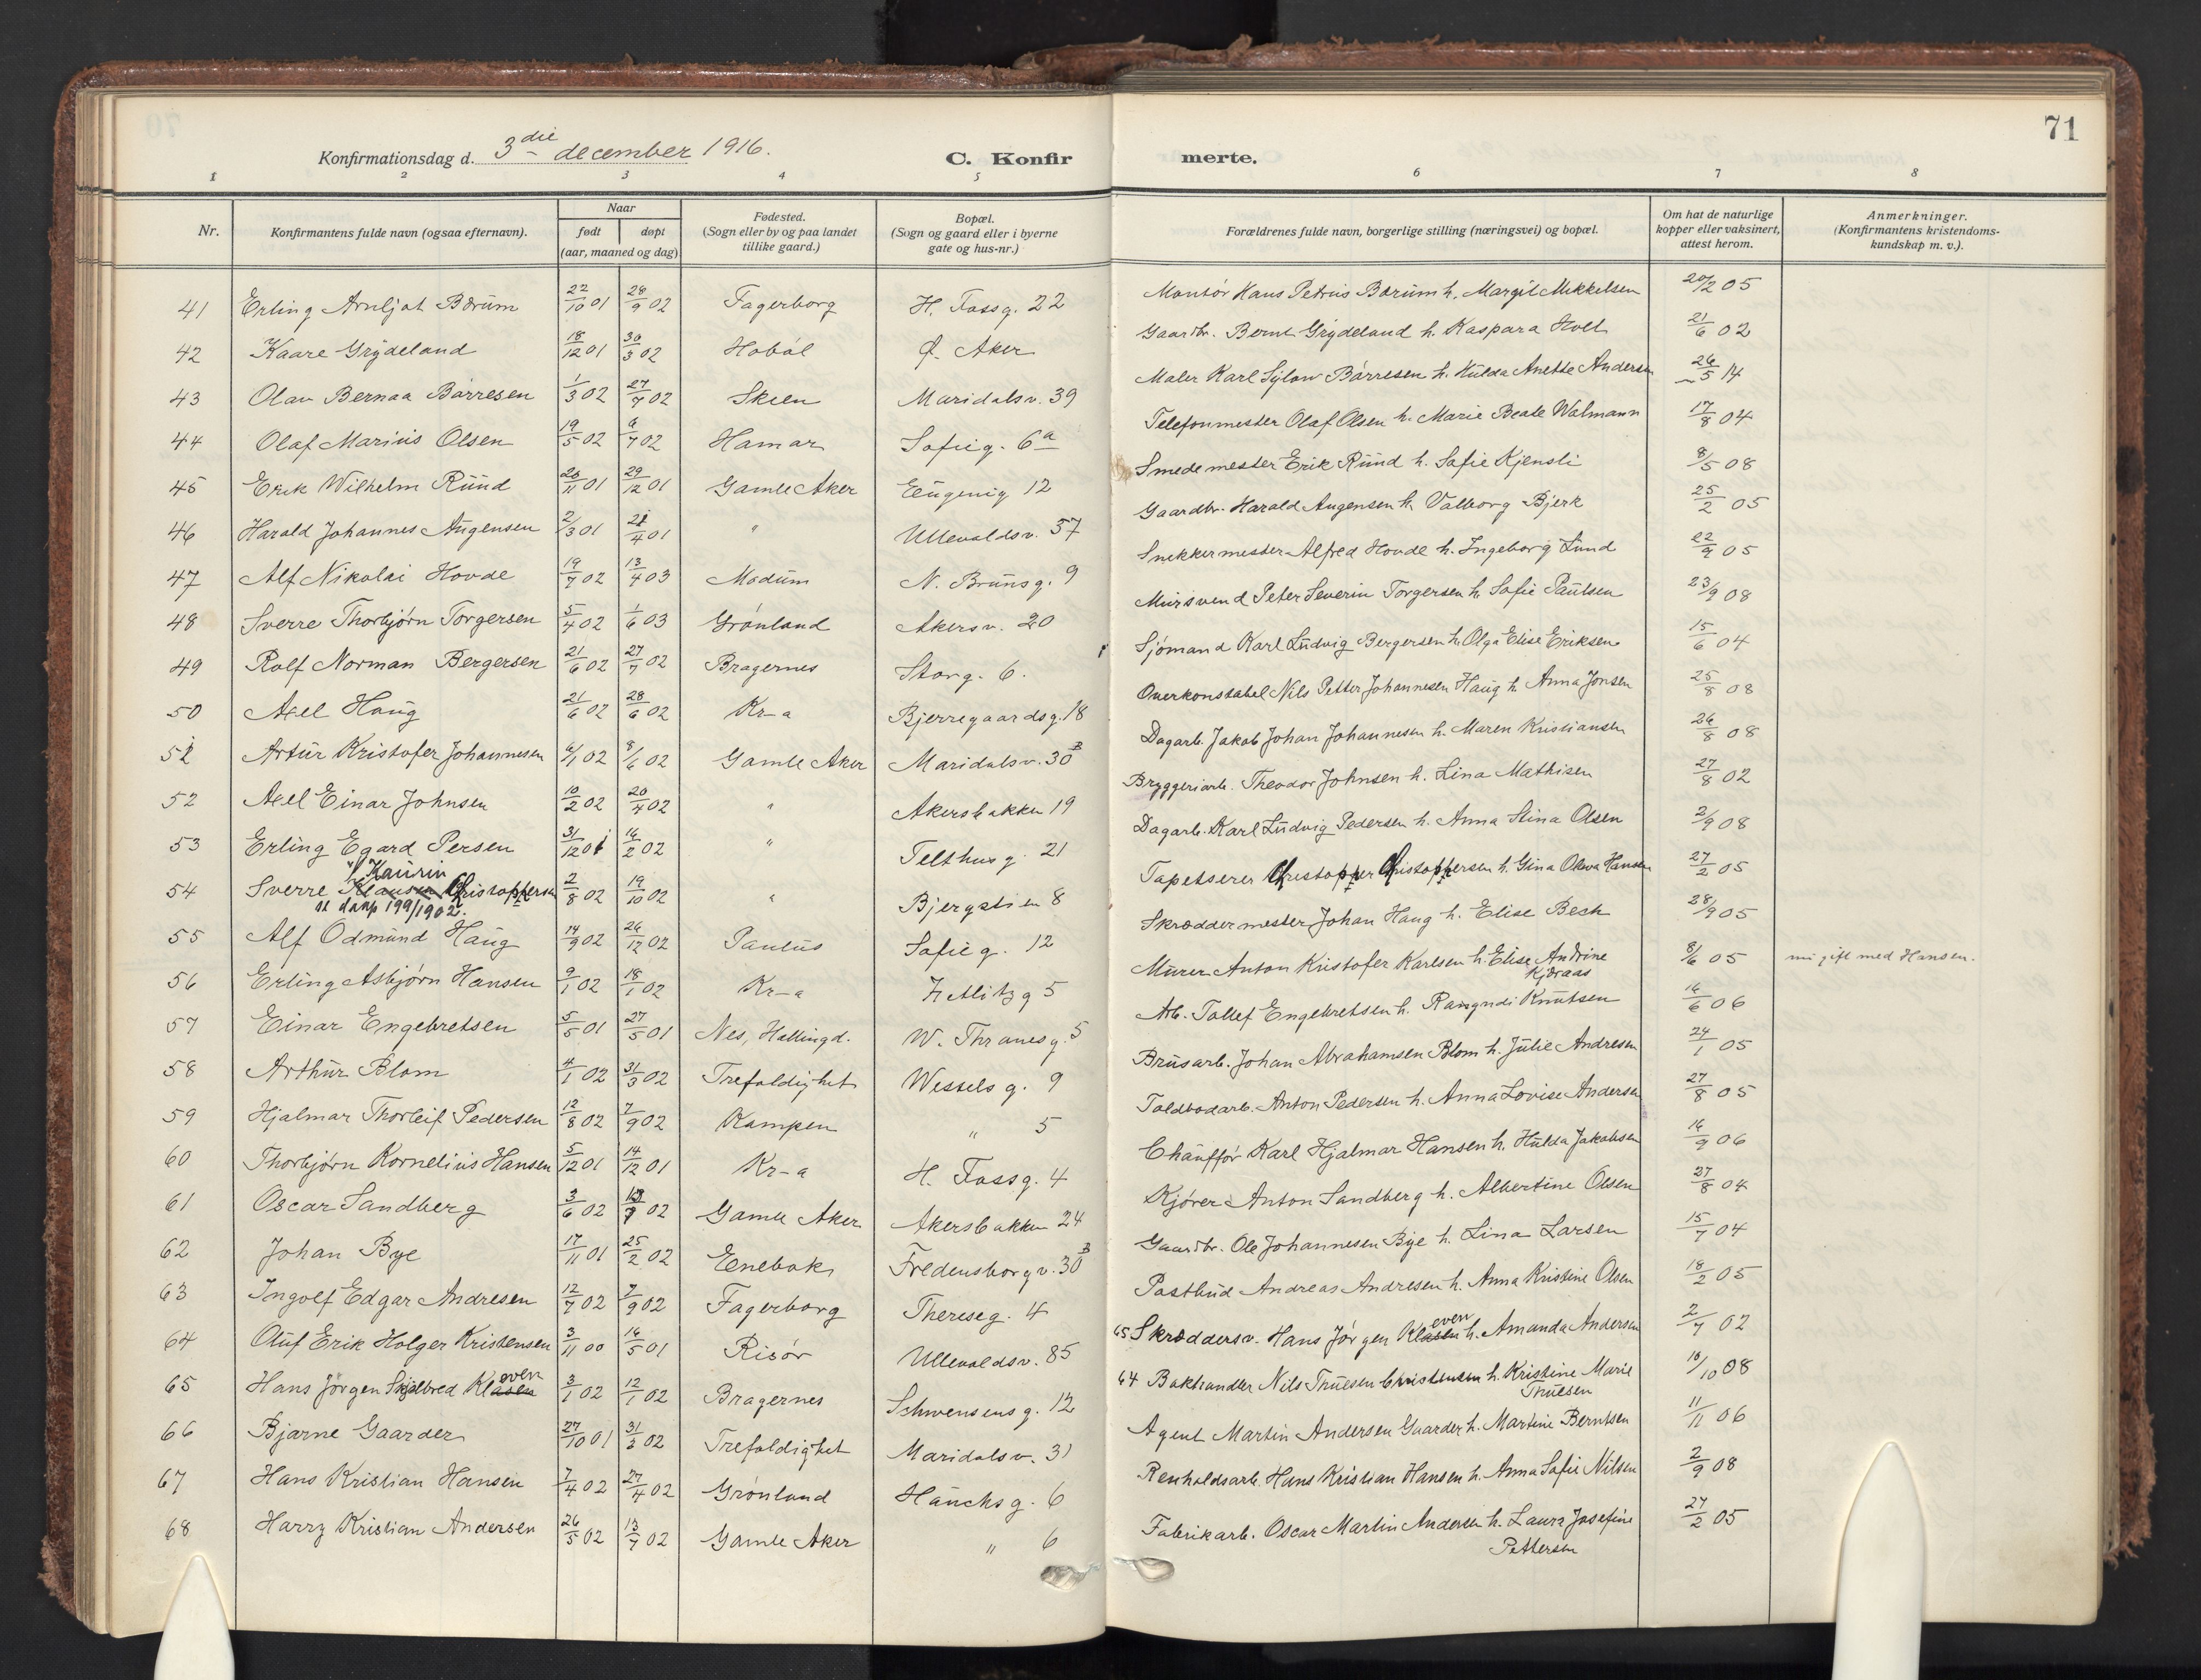 71
Konfirmationsdag d. 3die december 1916.
C. Konfirmerte.
1 2 3 4 5 6 7 8
Nr.
Konfirmantens fulde navn (ogsaa efternavn).
Naar
født døpt
(aar, maaned og dag)
Fødested.
(Sogn eller by og paa landet
tillike gaard.)
Bopæl.
(Sogn og gaard eller i byerne
gate og hus-nr.)
Forældrenes fulde navn, borgerlige stilling (næringsvei) og bopæl.
Om hat de naturlige
kopper eller vaksinert,
attest herom.
Anmerkninger.
(Konfirmantens kristendoms-
kundskap m. v.).
41 Erling Arnljot Bærum 22/10 01 28/9 02 Fagerborg H. Fossg. 22 Montør Hans Petrus Bærum h. Margit Mikkelsen 20/2 05
42 Kaare Grydeland 18/12 01 30/3 02 Hobøl Ø. Aker Gaardbr. Bernt Grydeland h. Kaspara Holt 21/6 02
43 Olav Bernaa Børresen 1/3 02 27/7 02 Skien Maridalsv. 39 Maler Karl Sylow Børresen h. Hulda Anette Andersen 26/5 14
44 Olaf Marius Olsen 19/5 02 6/7 02 Hamar Sofieg. 6a Telefonmester Olaf Olsen h. Marie Beate Walmann 17/8 04
45 Erik Wilhelm Ruud 20/11 01 29/12 01 Gamle Aker Eugenig 12 Smedemester Erik Ruud h. Sofie Kjensli 8/5 08
46 Harald Johannes Augensen 2/3 01 21/4 01 " Ullevoldsv. 57 Gaardbr. Harald Augensen h. Valborg Bjerk 25/2 05
47 Alf Nikolai Hovde 19/7 02 13/4 03 Modum N. Brunsg. 9 Snekkermester Alfred Hovde h. Ingeborg Lund 22/9 05
48 Sverre Thorbjørn Torgersen 5/4 02 1/6 03 Grønland Akersv. 20 Mursvend Peter Severin Torgersen h. Sofie Paulsen 23/9 08
49 Rolf Norman Bergersen 21/6 02 27/7 02 Bragernes Storg. 6. Sjømand Karl Ludvig Bergersen h. Olga Elise Eriksen 15/6 04
50 Axel Haug 21/6 02 28/6 02 Kr-a Bjerregaardsg. 18 Overkonstabel Nils Petter Johannesen Haug h. Anna Jonsen 25/8 08
51 Artur Kristofer Johannesen 6/1 02 8/6 02 Gamle Aker Maridalsv. 30B Dagarb. Jakob Johan Johannesen h. Maren Kristiansen 26/8 08
52 Axel Einar Johnsen 10/2 02 20/4 02 " Akersbakken 19 Bryggeriarb. Theodor Johnsen h. Lina Mathisen 27/8 02
53 Erling Egard Persen 31/12 01 16/2 02 " Telthusg. 21 Dagarb. Karl Ludvig Pedersen h. Anna Stina Olsen 2/9 08
Kaurin
54 Sverre Klausen Christophersen 2/8 02 19/10 02 " Bjergstien 8 Tapetserer Christopher Christophersen h. Gina Oleva Hansen 27/2 05
se døp 199/1902.
55 Alf Odmund Haug 14/9 02 26/12 02 Paulus Sofieg. 12 Skræddermester Johan Haug h. Elise Beck 28/9 05
56 Erling Asbjørn Hansen 9/1 02 18/1 02 Kr-a Zetlitzg 5 Murer Anton Kristofer Karlsen h. Elise Andrine Kjøraas 8/6 05 nu gift med Hansen.
57 Einar Engebretsen 5/5 01 27/5 01 Nes, Hallingd. W. Thranesg. 5 Arb. Tollef Engebretsen h. Rangndi Knutsen 16/6 06
58 Arthur Blom 4/1 02 31/3 02 Trefoldighet Wesselsg. 9 Brusarb. Johan Abrahamsen Blom h. Julie Andresen 24/1 05
59 Hjalmar Thorleif Pedersen 12/8 02 7/9 02 Kampen " 5 Toldbodarb. Anton Pedersen h. Anna Lovise Andersen 27/8 05
60 Thorbjørn Kornelius Hansen 5/12 01 14/12 01 Kr-a H. Fossg. 4 Chauffør Karl Hjalmar Hansen h. Hulda Jakobsen 16/9 06
61 Oscar Sandberg 3/6 02 02 Gamle Aker Akersbakken 24 Kjører Anton Sandberg h. Albertine Olsen 27/8 04
62 Johan Bye 17/11 01 25/2 02 Enebak Fredensborgv. 30B Gaardbr. Ole Johannesen Bye h. Lina Larsen 15/7 04
63 Ingolf Edgar Andresen 12/7 02 7/9 02 Fagerborg Thereseg. 4 Postbud Andreas Andresen h. Anna Kristine Olsen 18/2 05
64 Oluf Erik Holger Kristensen 3/11 00 16/5 01 Risør Ullevoldsv. 85 65 Skræddersv. Hans Jørgen Klasen even h. Amanda Andersen 2/7 02
65 Hans Jørgen Skjølbred Klasen oven 3/1 02 12/1 02 Bragernes Schwensensg. 12 64 Bokhandler Nils Thuesen Christensen h. Kristine Marie Thuesen 10/10 08
66 Bjarne Gaarder 27/10 01 31/3 02 Trefoldighet Maridalsv. 31 Agent Martin Andersen Gaarder h. Martine Berntsen 11/11 06
67 Hans Kristian Hansen 7/4 02 27/4 02 Grønland Hauchsg. 6 Renholdsarb. Hans Kristian Hansen h. Anna Sofie Nilsen 2/9 08
68 Harry Kristian Andersen 26/5 02 13/7 02 Gamle Aker " 6 Fabrikarb. Oscar Martin Andersen h. Laura Josefine Pettersen 27/2 05